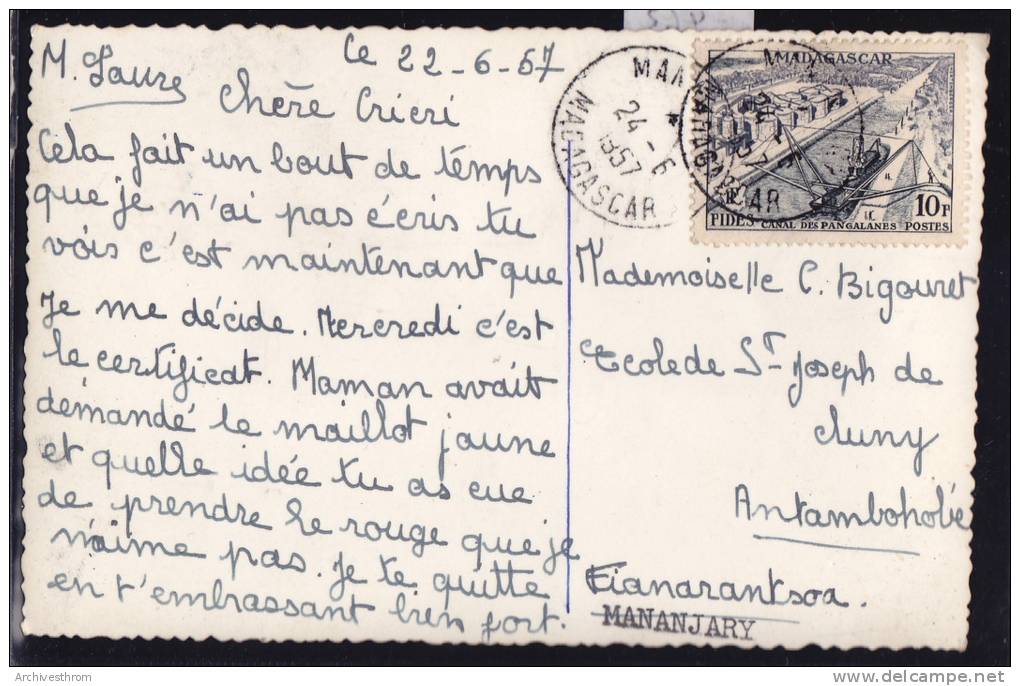 Le 22-6-57
M. Laure
Chère Cricri
Cela fait un bout de temps
que je n'ai pas écris tu
vois c'est maintenant que
Je me décide. Mercredi c'est
le certificat. Maman avait
démandé le maillot jaune
et quelle idée tu as eue
de prendre le rouge que je
n'aime pas. Je te quitte
en t'embrassant bien fort.
MADAGASCAR
24-6
1957
MADAGASCAR
10F
FIDES CANAL DES PANGALANES POSTES
Mademoiselle C. Bigouret
Ecole de St Joseph de
Cluny
Antambohobé
Fianarantsoa.
MANANJARY
Archivesthrom
delcampe.net